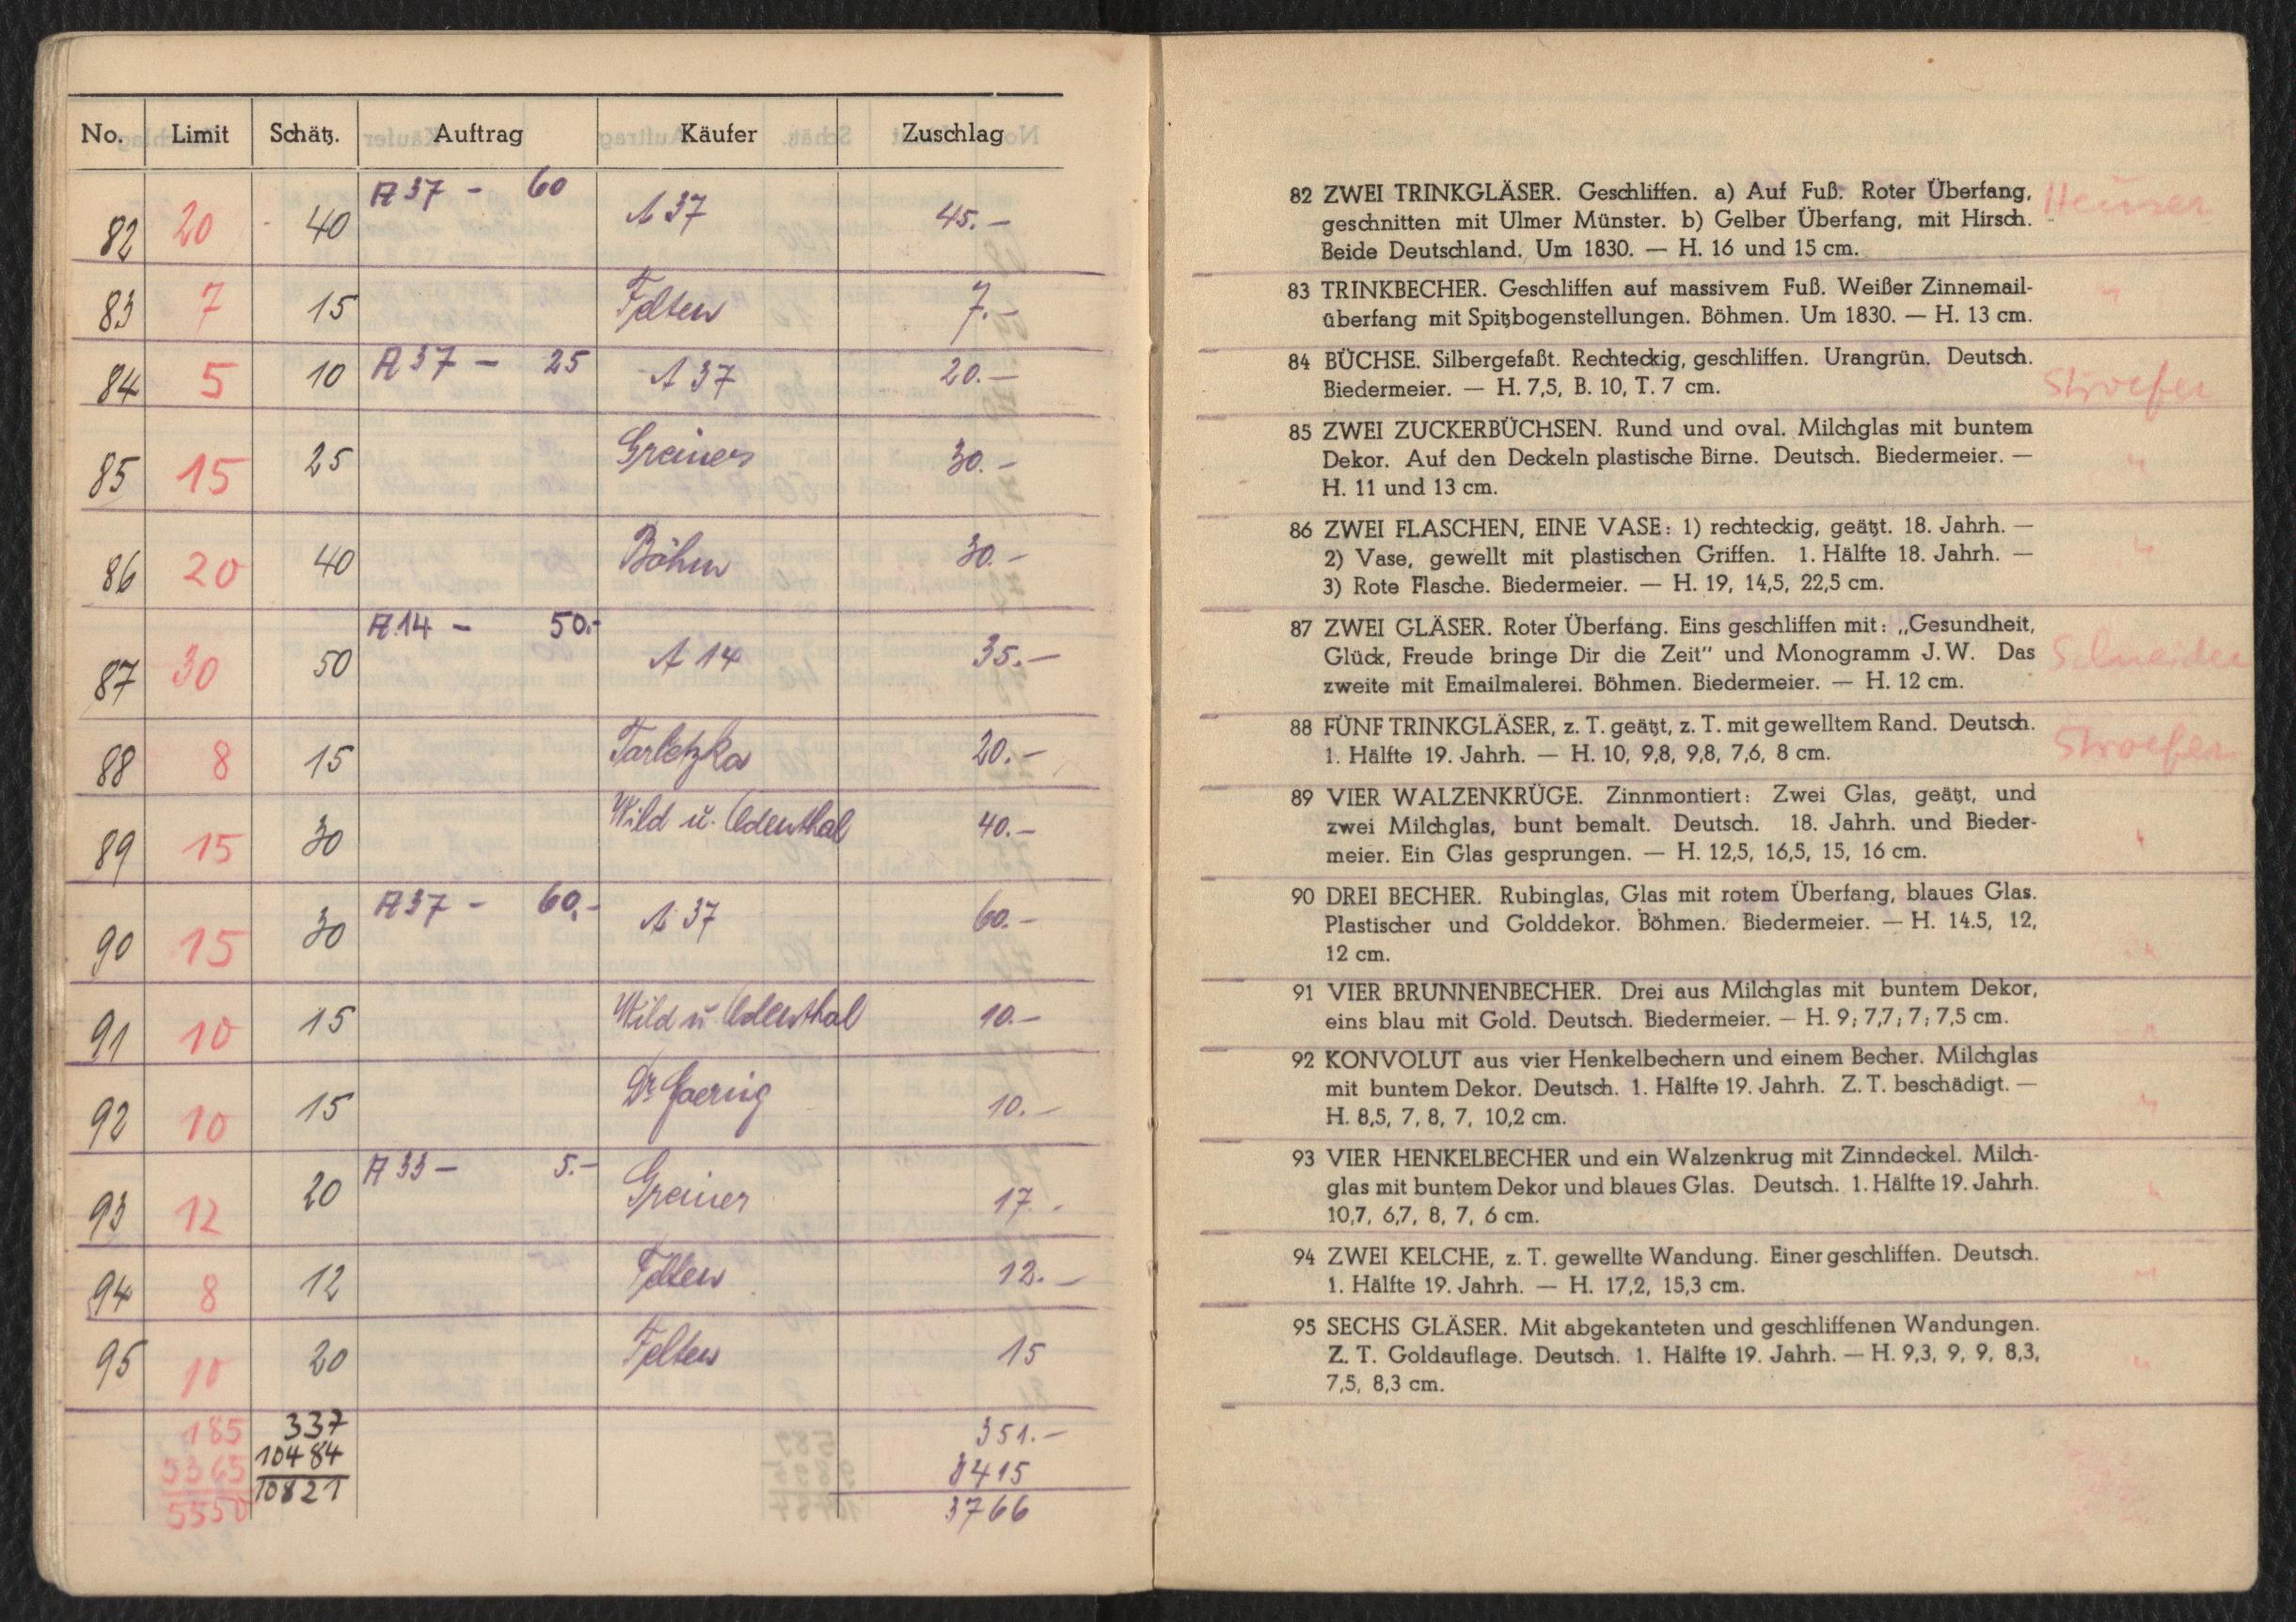 No. Limit Schätz. Auftrag Käufer Zuschlag
82 20 40 A 37 - 60 A 37 45.-
83 7 15 Felten 7.-
84 5 10 A 37 - 25 A 37 20.-
85 15 25 Greiner 30.-
86 20 40 Böhm 30.-
87 30 50 A 14 - 50.- A 14 35.-
88 8 15 Tarletzka 20.-
89 15 30 Wild u. Odenthal 40.-
90 15 30 A 37 - 60.- A 37 60.-
91 10 15 Wild u. Odenthal 10.-
92 10 15 Dr 10.-
93 12 20 A 33 - 5.- Greiner 17.-
94 8 12 Felten 12.-
95 10 20 Felten 15
185 337 351.-
5365 10484 3415
5550 10821 3766
82 ZWEI TRINKGLÄSER. Geschliffen. a) Auf Fuß. Roter Überfang, Heuser
geschnitten mit Ulmer Münster. b) Gelber Überfang, mit Hirsch.
Beide Deutschland. Um 1830. — H. 16 und 15 cm.
83 TRINKBECHER. Geschliffen auf massivem Fuß. Weißer Zinnemail- "
überfang mit Spitzbogenstellungen. Böhmen. Um 1830. — H. 13 cm.
84 BÜCHSE. Silbergefaßt. Rechteckig, geschliffen. Urangrün. Deutsch.
Biedermeier. — H. 7,5, B. 10, T. 7 cm. Stroefer
85 ZWEI ZUCKERBÜCHSEN. Rund und oval. Milchglas mit buntem
Dekor. Auf den Deckeln plastische Birne. Deutsch. Biedermeier. — "
H. 11 und 13 cm.
86 ZWEI FLASCHEN, EINE VASE: 1) rechteckig, geätzt. 18. Jahrh. —
2) Vase, gewellt mit plastischen Griffen. 1. Hälfte 18. Jahrh. — "
3) Rote Flasche. Biedermeier. — H. 19, 14,5, 22,5 cm.
87 ZWEI GLÄSER. Roter Überfang. Eins geschliffen mit: „Gesundheit,
Glück, Freude bringe Dir die Zeit" und Monogramm J. W. Das Schneider
zweite mit Emailmalerei. Böhmen. Biedermeier. — H. 12 cm.
88 FÜNF TRINKGLÄSER, z. T. geätzt, z. T. mit gewelltem Rand. Deutsch.
1. Hälfte 19. Jahrh. — H. 10, 9,8, 9,8, 7,6, 8 cm. Stroefer
89 VIER WALZENKRÜGE. Zinnmontiert: Zwei Glas, geätzt, und
zwei Milchglas, bunt bemalt. Deutsch. 18. Jahrh. und Bieder- "
meier. Ein Glas gesprungen. — H. 12,5, 16,5, 15, 16 cm.
90 DREI BECHER. Rubinglas, Glas mit rotem Überfang, blaues Glas.
Plastischer und Golddekor. Böhmen. Biedermeier. — H. 14.5, 12,
12 cm. "
91 VIER BRUNNENBECHER. Drei aus Milchglas mit buntem Dekor,
eins blau mit Gold. Deutsch. Biedermeier. — H. 9; 7,7; 7; 7,5 cm. "
92 KONVOLUT aus vier Henkelbechern und einem Becher. Milchglas
mit buntem Dekor. Deutsch. 1. Hälfte 19. Jahrh. Z. T. beschädigt. — "
H. 8,5, 7, 8, 7, 10,2 cm.
93 VIER HENKELBECHER und ein Walzenkrug mit Zinndeckel. Milch-
glas mit buntem Dekor und blaues Glas. Deutsch. 1. Hälfte 19. Jahrh. "
10,7, 6,7, 8, 7, 6 cm.
94 ZWEI KELCHE, z. T. gewellte Wandung. Einer geschliffen. Deutsch. "
1. Hälfte 19. Jahrh. — H. 17,2, 15,3 cm.
95 SECHS GLÄSER. Mit abgekanteten und geschliffenen Wandungen.
Z. T. Goldauflage. Deutsch. 1. Hälfte 19. Jahrh. — H. 9,3, 9, 9, 8,3, "
7,5, 8,3 cm.